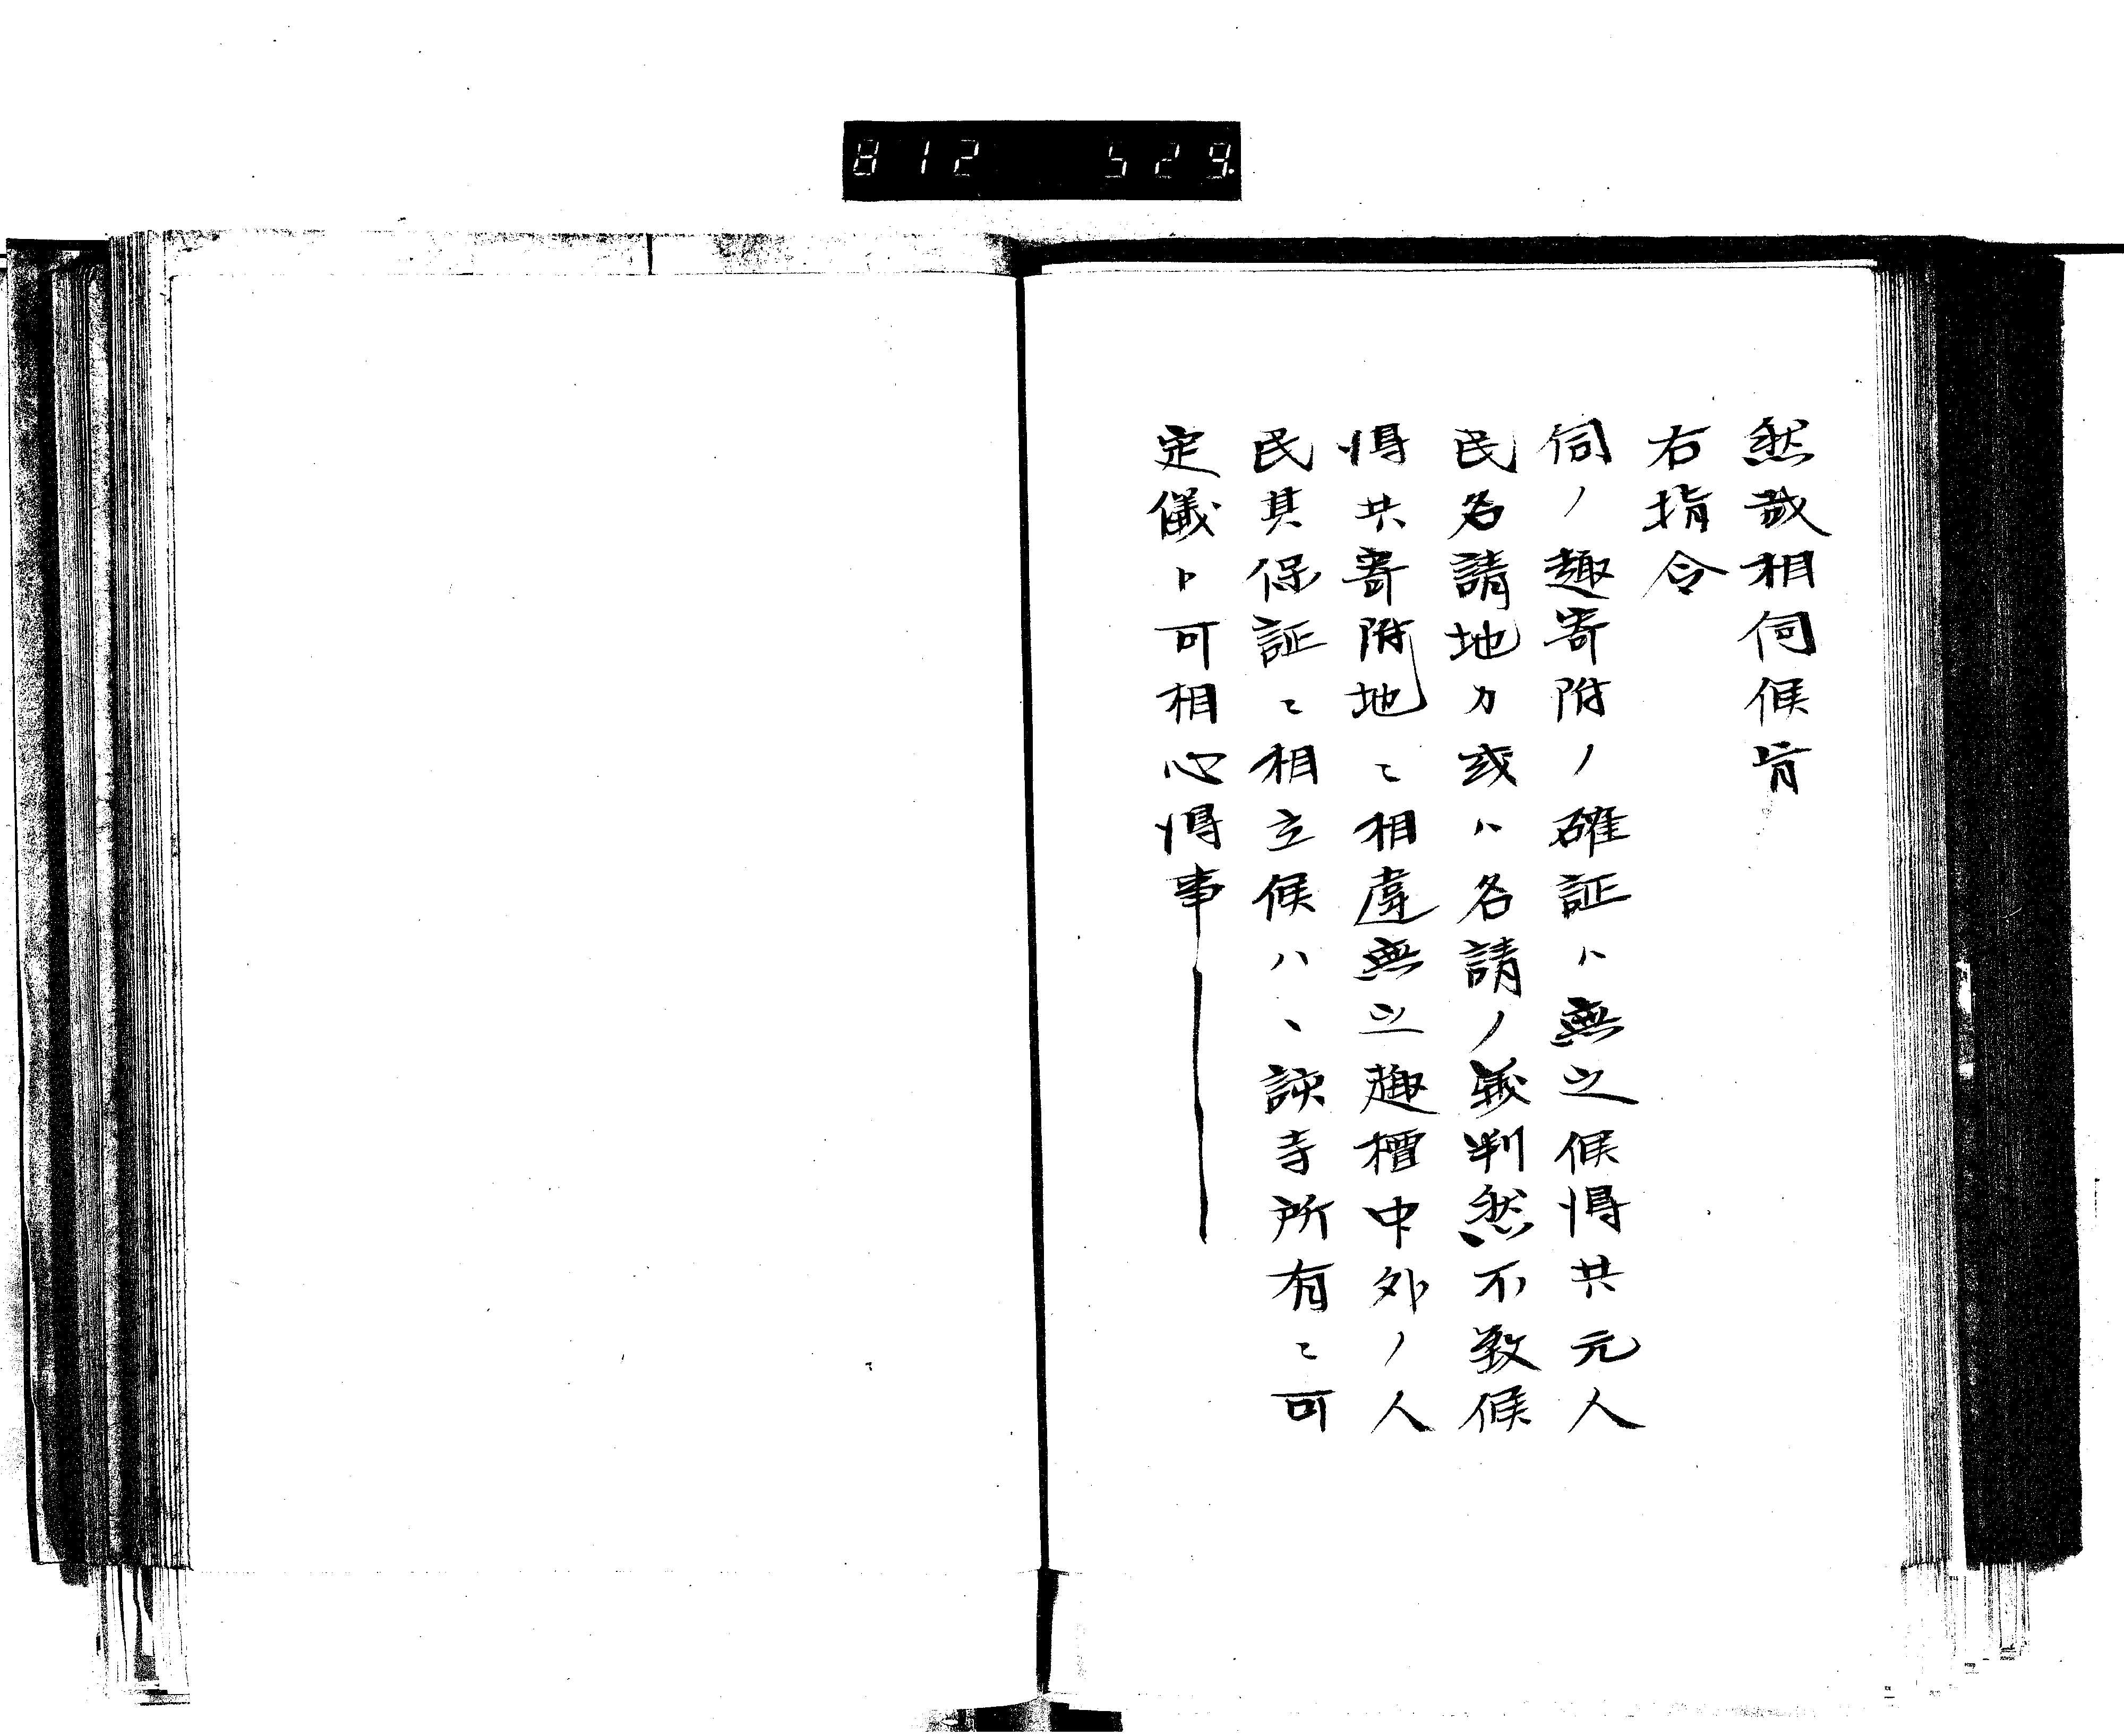 812 529.
然哉相伺候旨
右指令
伺ノ趣寄附ノ確証ハ無之候得共元人
民名請地カ或ハ名請ノ義判然不致候
得共寄附地ニ相違無之趣檀中外ノ人
民其保証ニ相立候ハヽ該寺所有ニ可
定儀ト可相心得事